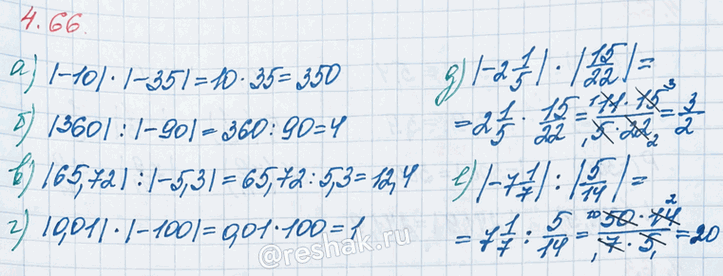 4.66.
а) |-10| · |-35| = 10 · 35 = 350
б) |360| : |-90| = 360 : 90 = 4
в) |65,72| : |-5,3| = 65,72 : 5,3 = 12,4
г) |0,01| · |-100| = 0,01 · 100 = 1
д) |-2 1/5| · |15/22| =
= 2 1/5 · 15/22 = 11 · 15 / 5 · 22 = 3/2
е) |-7 1/7| : |5/14| =
= 7 1/7 : 5/14 = 50 · 14 / 7 · 5 = 20
@reshak.ru